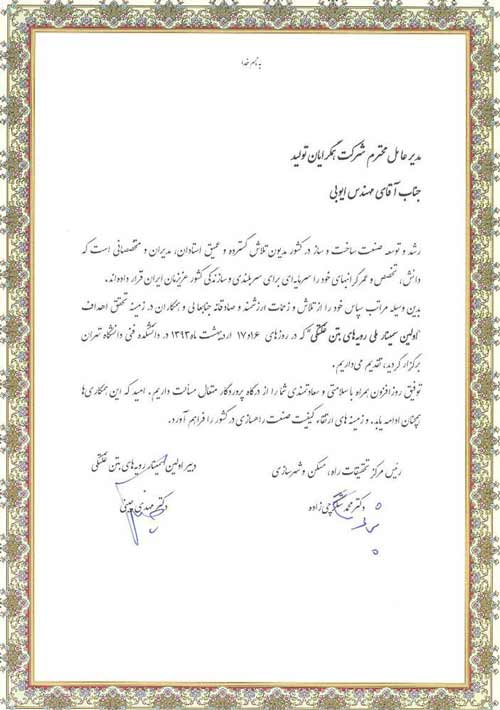 بنام خدا
مدیر عامل محترم شرکت همگرایان تولید
جناب آقای مهندس ایوبی
رشد و توسعه صنعت ساخت و ساز در کشور مدیون تلاش گسترده و عمیق استادان، مدیران و متخصصانی است که
دانش، تخصص و عمر گرانبهای خود را سرمایه‌ای برای سربلندی و سازندگی کشور عزیزمان ایران قرار داده‌اند.
بدین وسیله مراتب سپاس خود را از تلاش و زحمات ارزشمند و صادقانه جنابعالی و همکاران در زمینه تحقق اهداف
"اولین سمینار ملی رویه‌های بتن غلتکی" که در روزهای ۱۶ و ۱۷ اردیبهشت ماه ۱۳۹۳ در دانشکده فنی دانشگاه تهران
برگزار گردید، تقدیم می‌داریم.
توفیق روز افزون همراه با سلامتی و سعادتمندی شما را از درگاه پروردگار متعال مسألت داریم. امید که این همکاری‌ها
همچنان ادامه یابد، و زمینه های ارتقاء کیفیت صنعت راهسازی در کشور را فراهم آورد.
رئیس مرکز تحقیقات راه، مسکن و شهرسازی
دکتر محمد شکرچی زاده
دبیر اولین سمینار رویه‌های بتن غلتکی
دکتر مهدی چینی